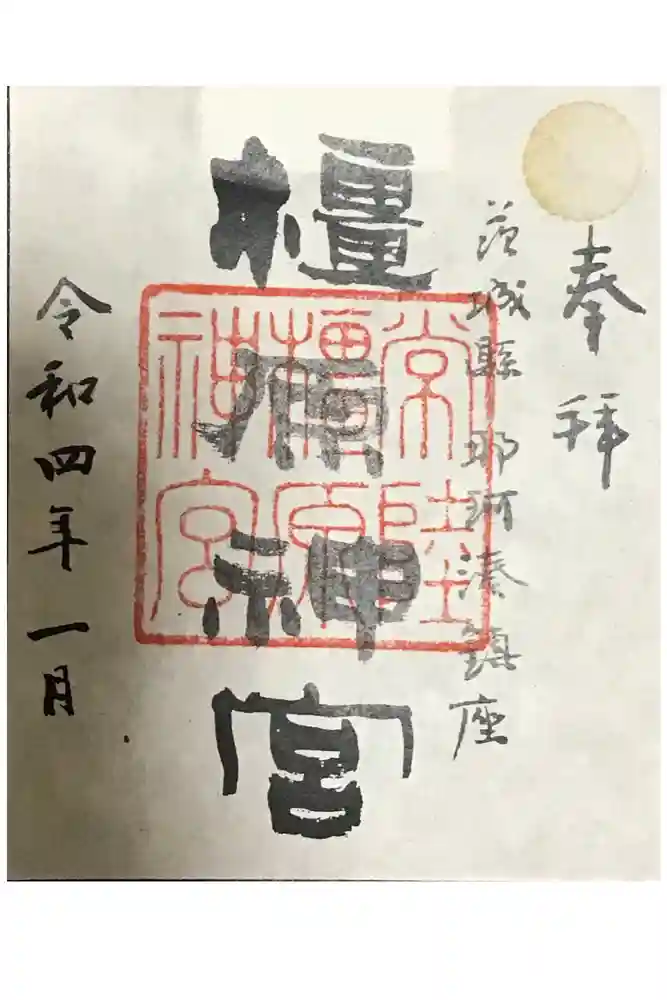 奉拝
茨城縣 那珂湊鎮座
橿原神宮
常陸
橿原
神宮
令和四年一月